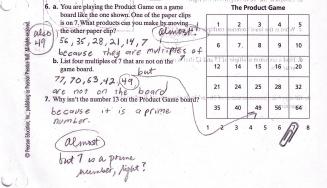 6. a. You are playing the Product Game on a game
board like the one shown. One of the paper clips
is on 7. What products can you make by moving
the other paper clip?
almost!
also 49
56, 35, 28, 21, 14, 7
because they are multiples of
b. List four multiples of 7 that are not on the
game board.
but
77, 70, 63, 42, 49
are not on the board
7. Why isn't the number 13 on the Product Game board?
because it is a prime
number.
almost
but 7 is a prime
number, right?
The Product Game
1 2 3 4 5
6 7 8 9 10
12 14 15 16 20
21 24 25 28 32
35 40 49 56 64
1 2 3 4 5 6 7 8